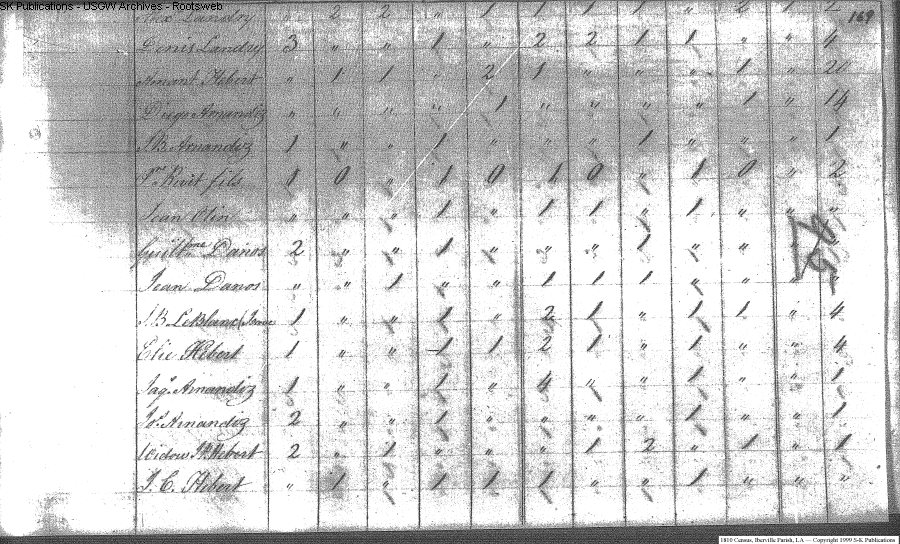 SK Publications - USGW Archives - Rootsweb
169
Alex Landry " 2 2 " 1 1 1 1 " 2 1 2
Denis Landry 3 " " 1 " 2 2 1 1 " " 4
Amant Hebert " 1 1 " 2 1 " " " 1 " 20
Diego Arnandiz " " " " 1 " " " " 1 " 14
J. B. Arnandiz 1 " " 1 " " " 1 " " " 1
fils 1 0 " 1 0 1 0 " 1 0 " 2
Jean Olin " " " 1 " 1 1 " 1 " " "
Guillme Danos 2 " " 1 " " " 1 " " "
Jean Danos " " 1 " " 1 1 1 " " " "
J. B. LeBlanc 1 " " 1 " 2 1 " 1 1 " 4
Elie Hebert 1 " " 1 1 2 1 " 1 " " 4
Jaqs. Arnandiz 1 " " 1 " 4 " " 1 " " 1
Jos. Arnandiz 2 " " 1 " " " " 1 " " 1
Widow Hebert 2 " 1 " " " 1 2 " 1 " 1
J. C. Hebert " 1 " 1 1 1 " " 1 " " "
1810 Census, Iberville Parish, LA — Copyright 1999 S-K Publications